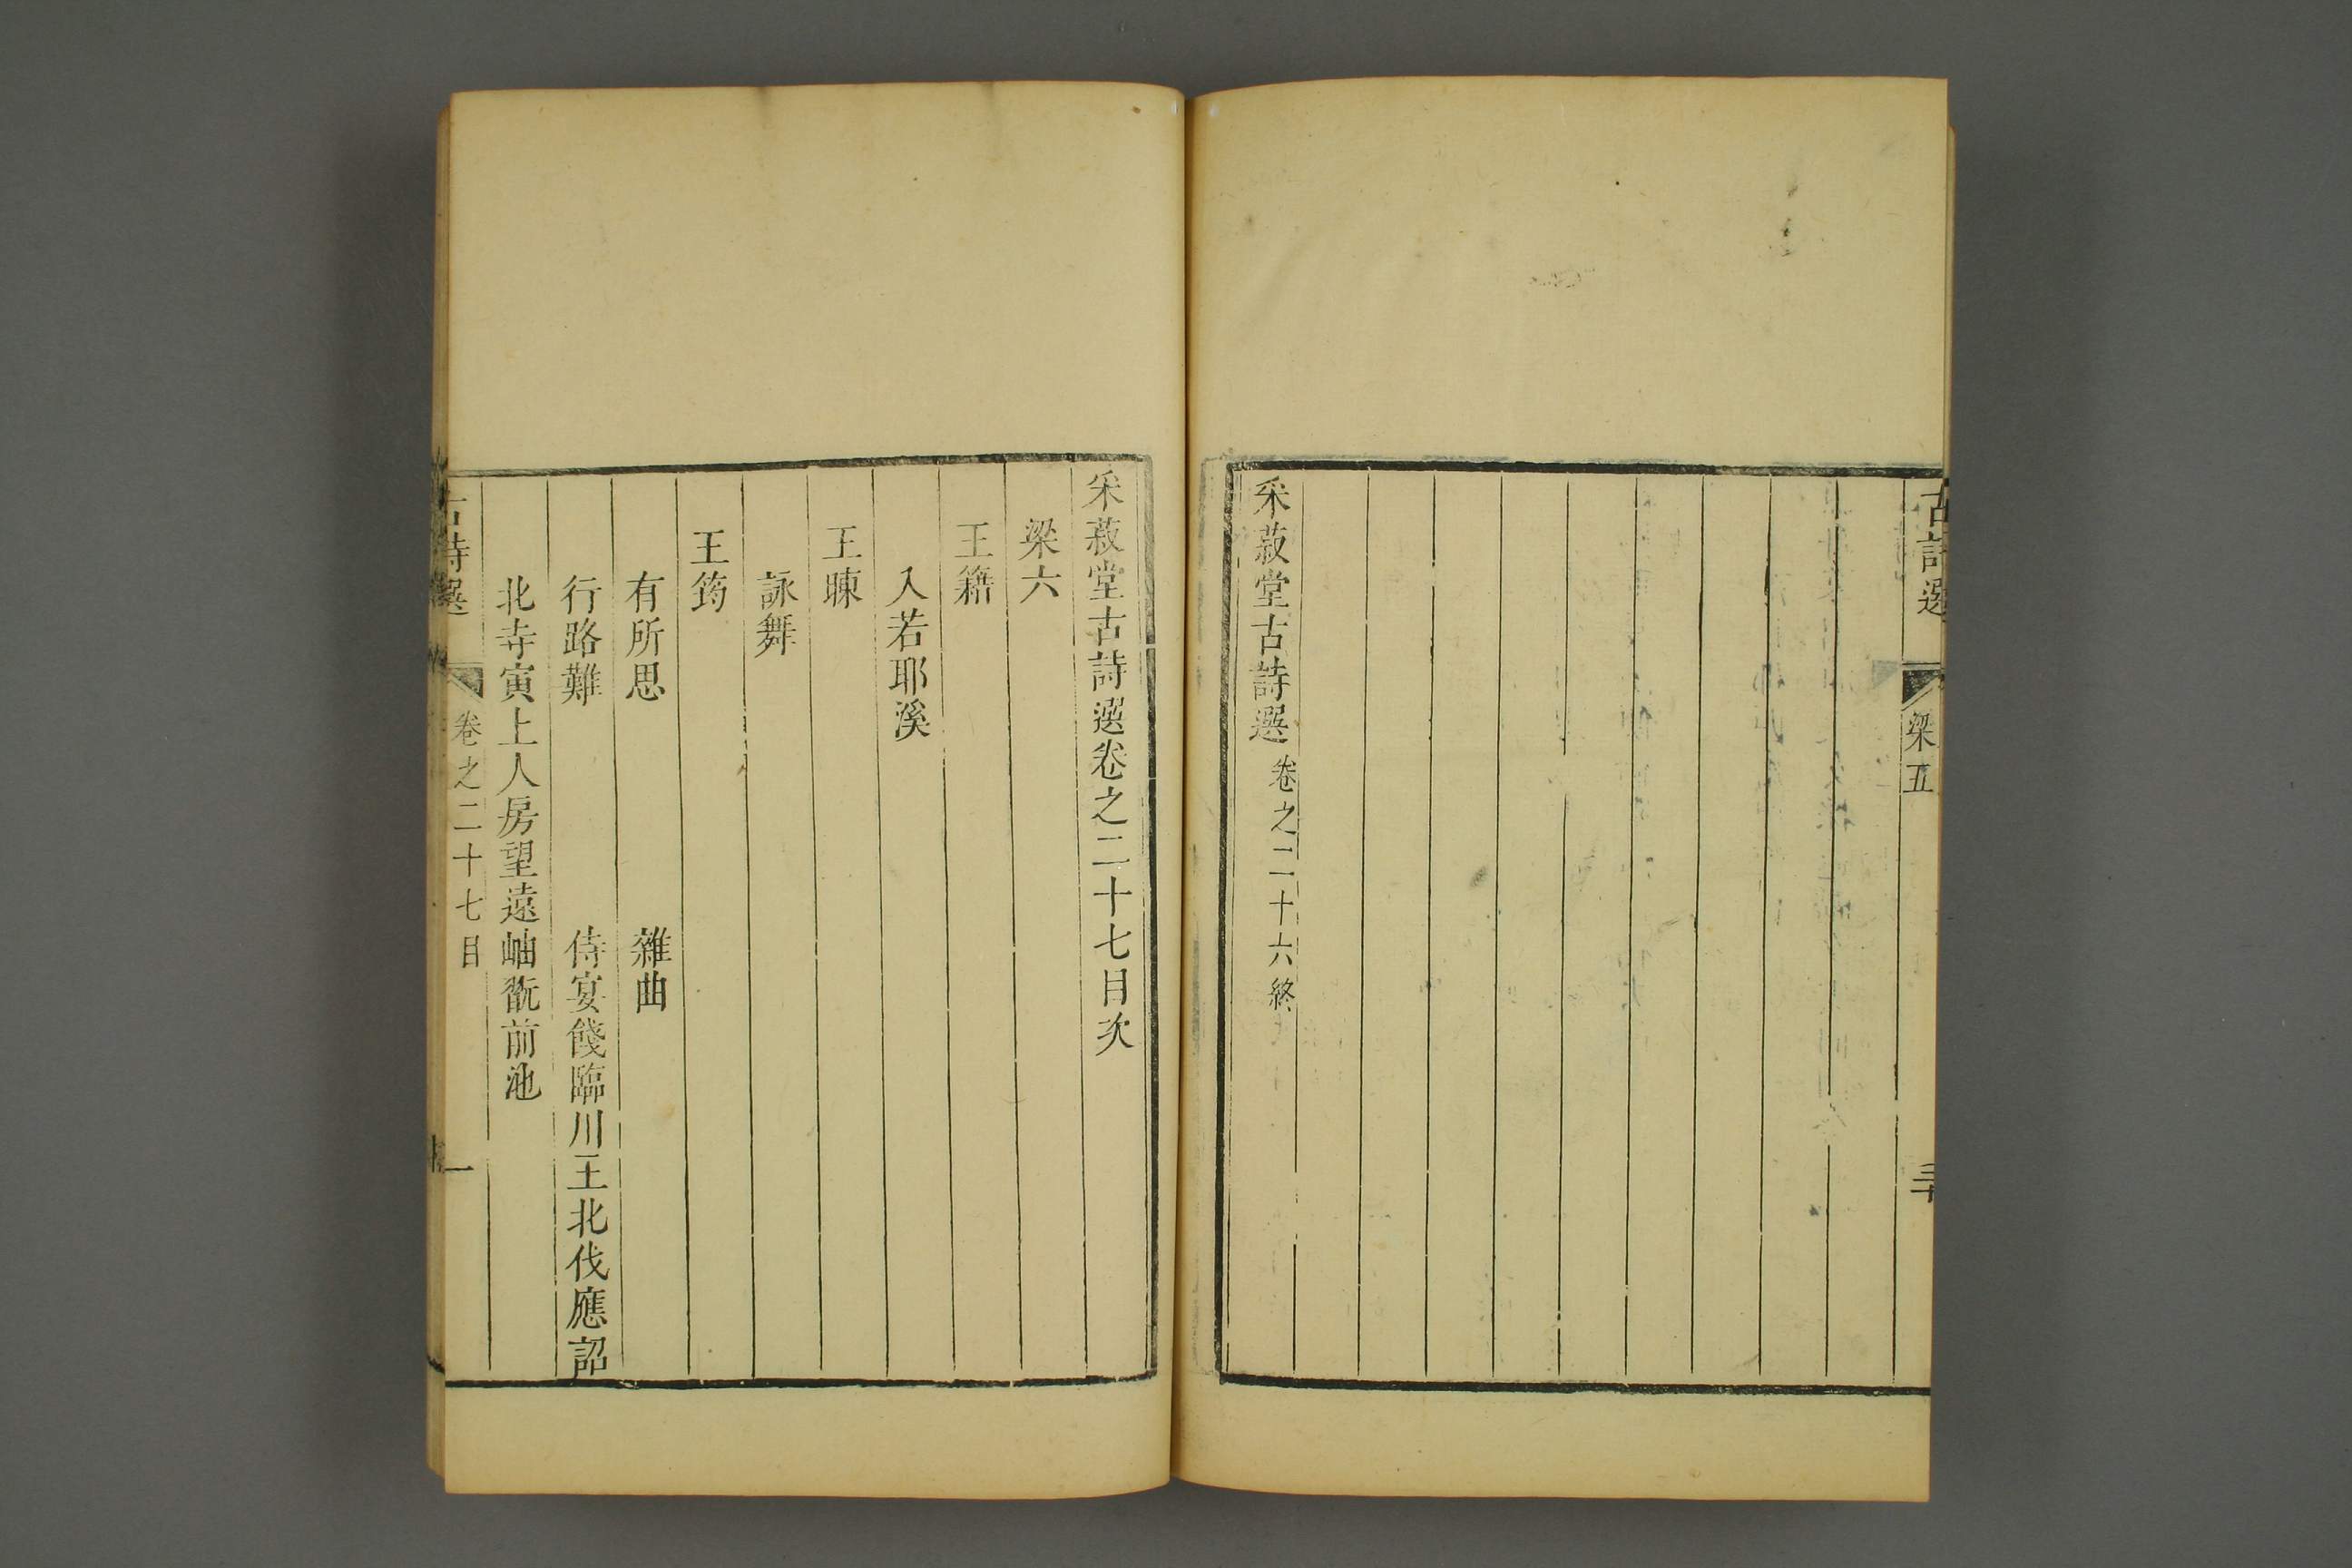 古詩選 梁五 三十
采菽堂古詩選 卷之二十六終
采菽堂古詩選卷之二十七目次
梁六
王籍
入若耶溪
王暕
詠舞
王筠
有所思 雜曲
行路難 侍宴餞臨川王北伐應詔
北寺寅上人房望遠岫翫前池
古詩選 卷之二十七目 一